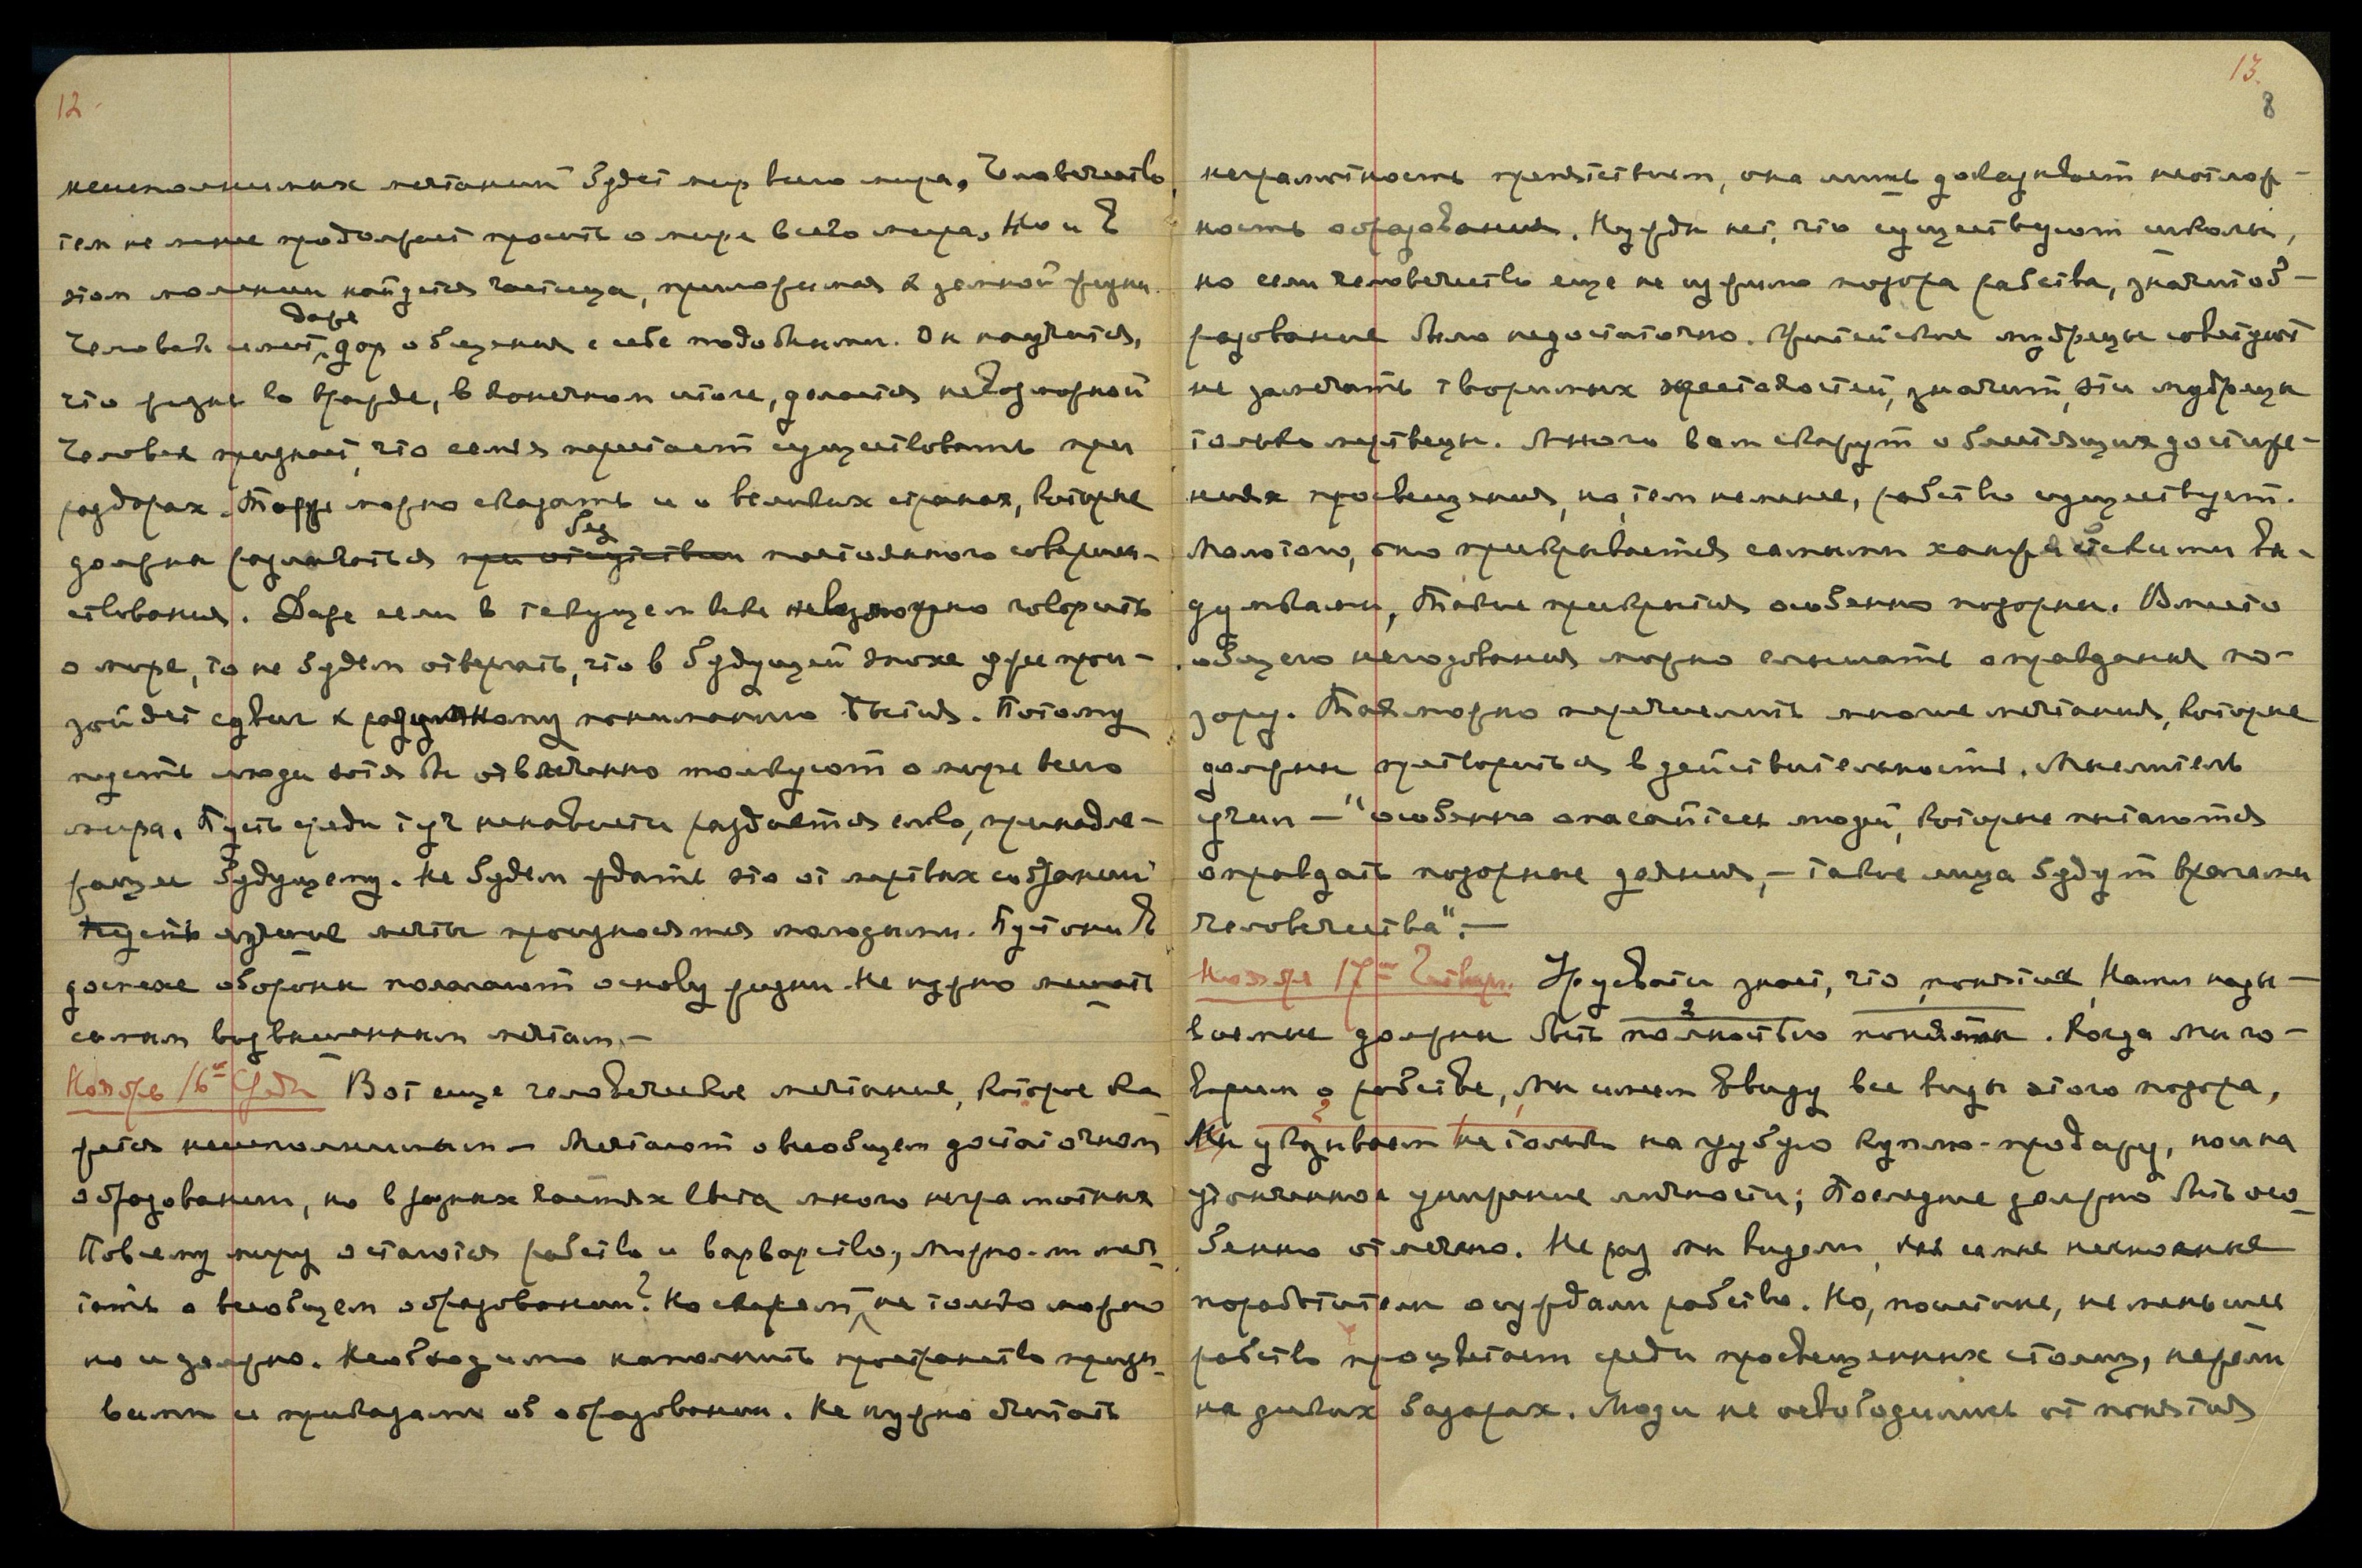 12.
неисполнимых мечтаний будет мир всего мира. Человечество,
тем не менее продолжает просить о мире всего мира. Но и в
этом молении найдется частица, приложимая к земной жизни.
даже
Человек имеет, дар общения с себе подобными. Он научится,
что жизнь во вражде, в конечном итоге, делается невозможной
Человек признает, что семья перестает существовать при
раздорах. Тоже можно сказать и о великих странах, которые
без
должны развиваться при отсутствии постоянного совершен-
ствования. Даже если в текущем веке невозможно говорить
о мире, то не будем отвергать, что в будущей эпохе уже прои-
зойдет сдвиг к разумному пониманию бытия. Потому
пусть люди хотя бы отвлеченно толкуют о мире всего
мира. Пусть среди туч ненависти раздается слово, принадле-
жащее будущему. Не будем ждать это от мертвых собраний
Пусть лучшие мечты произносятся молодыми. Пусть они в
доспехе обороны полагают основу жизни. Не нужно мешать
самым возвышенным мечтам.—
Ноябрь 16ое Среда Вот еще человеческое мечтание, которое ка-
жется неисполнимым — Мечтают о всеобщем достаточном
образовании, но в разных частях света много неграмотных
По всему миру остаются рабство и варварство, можно-ли меч-
тать о всеобщем образовании? Но скажем, не только можно
но и должно. Необходимо наполнить пространство призы-
вами и приказами об образовании. Не нужно считать
13.
8
неграмотность препятствием, она лишь доказывает неотлож-
ность образования. Нужды нет, что существуют школы,
но если человечество еще не изжило позора рабства, значит об-
разование было недостаточно. Житейские мудрецы советуют
не замечать творимых жестокостей, значит, эти мудрецы
только мертвецы. Много вам скажут о блестящих достиже-
ниях просвещения, но, тем не менее, рабство существует.
Мало того, оно прикрывается самыми ханжескими вы-
думками, Такие прикрытия особенно позорны. Вместо
общего негодования можно слышать оправдания по-
зору. Так можно перечислить многие мечтания, которые
должны претвориться в действительность. Мыслитель
учил — "особенно опасайтесь людей, которые пытаются
оправдать позорные деяния, — такие лица будут врагами
человечества". —
Ноября 17ое Четверг. Урусвати знает, что понятия, Нами назы-
2
ваемые должны быть полностью поняты. Когда Мы го-
ворим о рабстве, Мы имеем ввиду все виды этого позора,
2
Мы указываем не только на грубую куплю-продажу, но и на
утонченное унижение личности; Последнее должно быть осо-
бенно отмечено. Не раз мы видели, как самые неуклонные
поработители осуждали рабство. Но, поистине, не меньшее
рабство процветает среди просвещенных столиц, нежели
на диких базарах. Люди не освободились от понятия